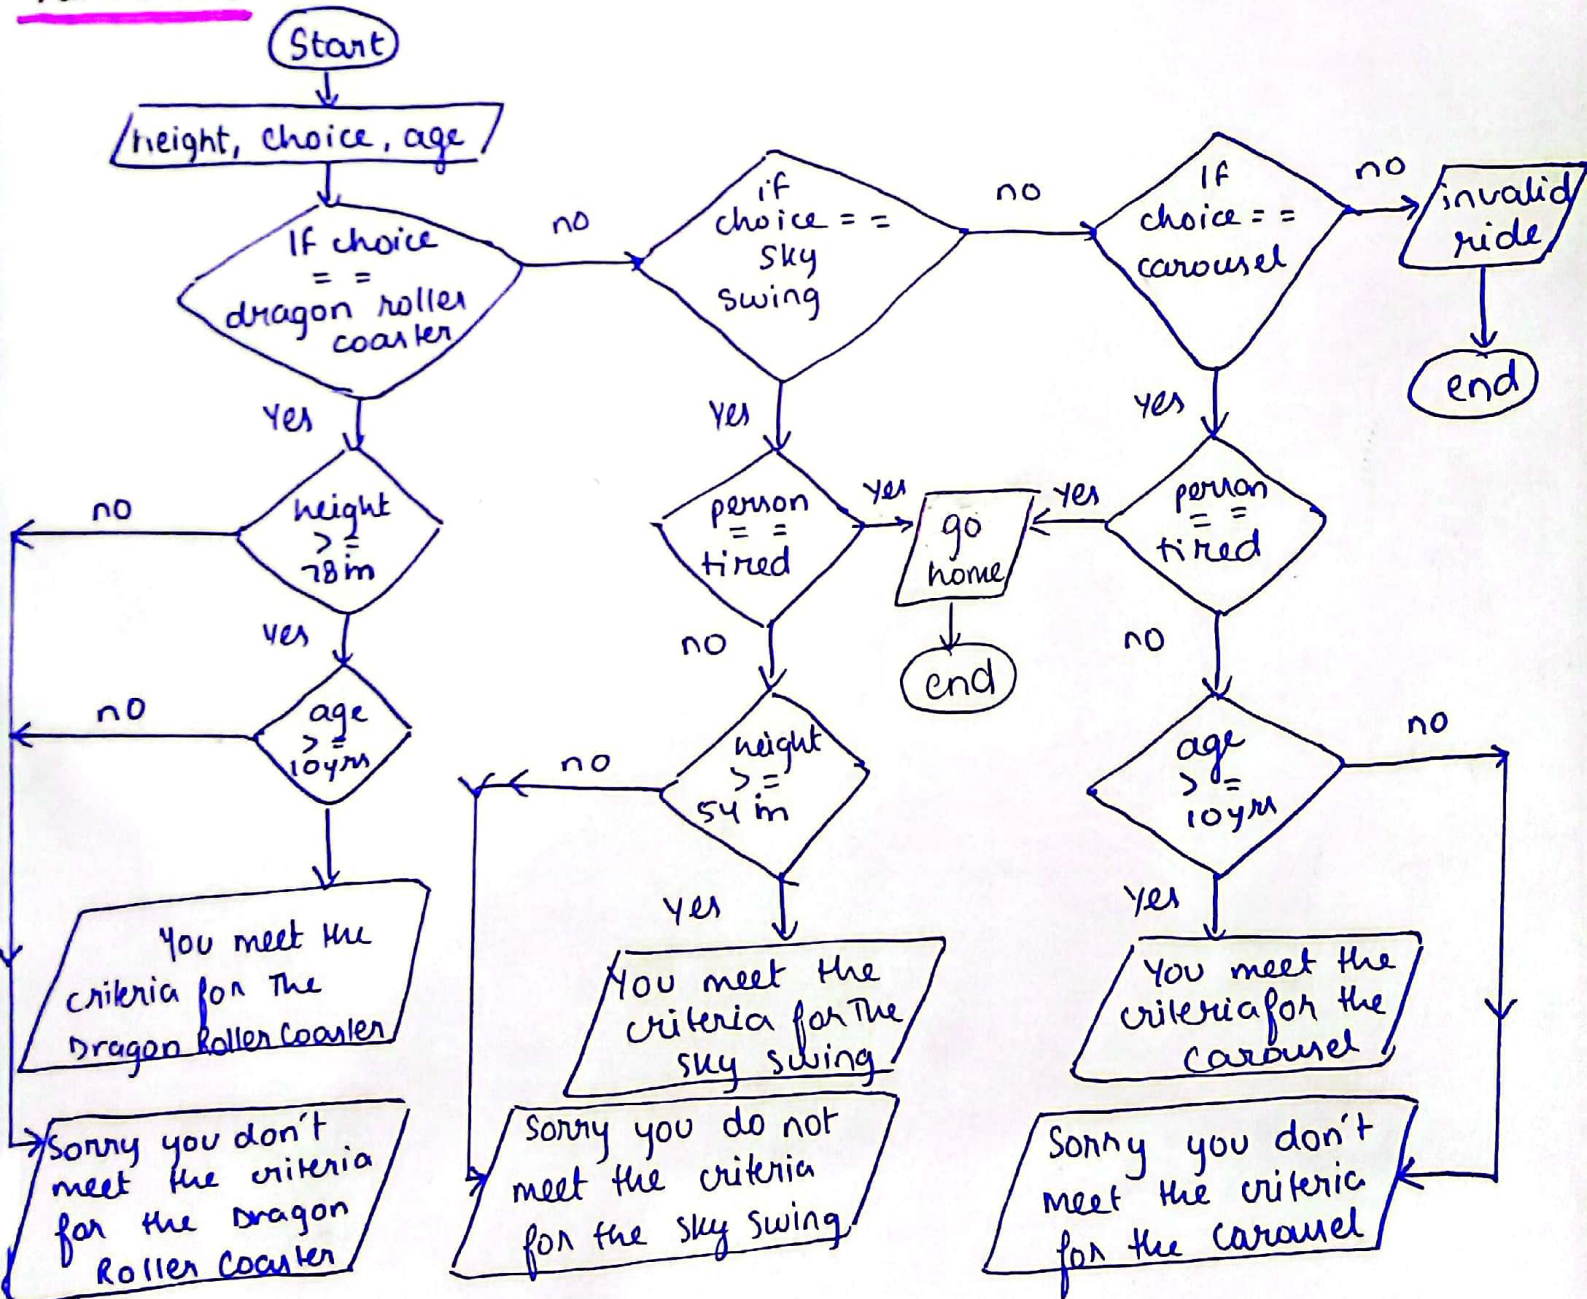 Start
height, choice, age
If choice
= =
dragon roller
coaster
no
if
choice = =
sky
swing
no
If
choice = =
carousel
no
invalid
ride
end
Yes
height
>=
78 in
no
yes
age
>=
10 yrs
no
You meet the
criteria for The
Dragon Roller Coaster
Sorry you don't
meet the criteria
for the Dragon
Roller Coaster
Yes
person
= =
tired
yes
go
home
end
no
height
>=
54 in
no
yes
You meet the
criteria for The
sky swing
Sorry you do not
meet the criteria
for the sky swing
yes
person
= =
tired
yes
no
age
>=
10 yrs
no
yes
You meet the
criteria for the
carousel
Sorry you don't
meet the criteria
for the carousel